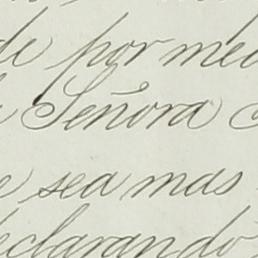 de por med
Señora
sea mas
eclarando